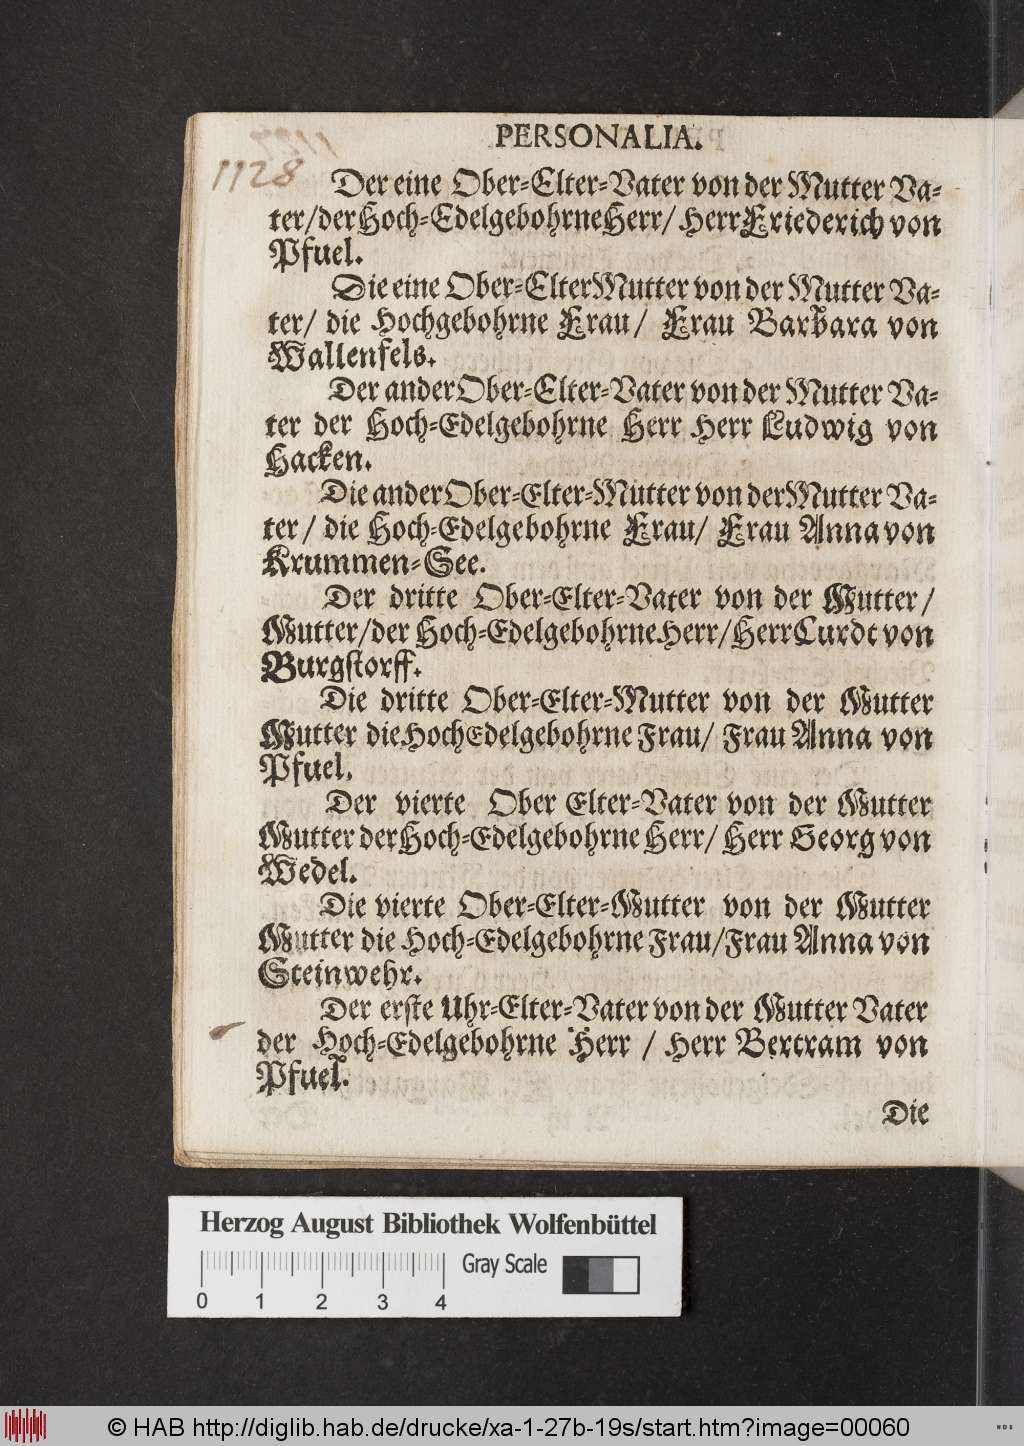 PERSONALIA.
1128
Der eine Ober-Elter-Vater von der Mutter Va-
ter/der Hoch-Edelgebohrne Herr/ Herr Friederich von
Pfuel.
Die eine Ober-Elter Mutter von der Mutter Va-
ter/ die Hochgebohrne Frau/ Frau Barbara von
Wallenfels.
Der ander Ober-Elter-Vater von der Mutter Va-
ter der Hoch-Edelgebohrne Herr Herr Ludwig von
Hacken.
Die ander Ober-Elter-Mutter von der Mutter Va-
ter/ die Hoch-Edelgebohrne Frau/ Frau Anna von
Krummen-See.
Der dritte Ober-Elter-Vater von der Mutter/
Mutter/der Hoch-Edelgebohrne Herr/Herr Curdt von
Burgstorff.
Die dritte Ober-Elter-Mutter von der Mutter
Mutter die HochEdelgebohrne Frau/ Frau Anna von
Pfuel.
Der vierte Ober Elter-Vater von der Mutter
Mutter der Hoch-Edelgebohrne Herr/ Herr Georg von
Wedel.
Die vierte Ober-Elter-Mutter von der Mutter
Mutter die Hoch-Edelgebohrne Frau/Frau Anna von
Steinwehr.
Der erste Uhr-Elter-Vater von der Mutter Vater
der Hoch-Edelgebohrne Herr / Herr Bertram von
Pfuel.
Die
Herzog August Bibliothek Wolfenbüttel
Gray Scale
0 1 2 3 4
© HAB http://diglib.hab.de/drucke/xa-1-27b-19s/start.htm?image=00060